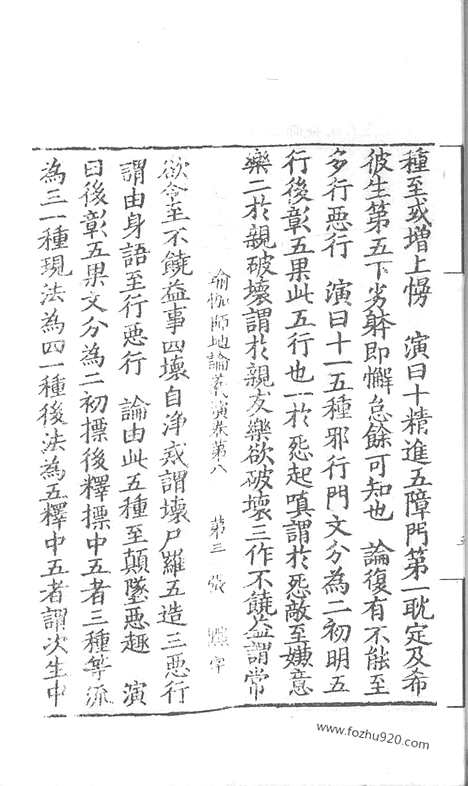 種至或增上慢　演曰十精進五障門第一耽定及希
彼生第五下劣躰即懈怠餘可知也　論復有不能至
多行惡行　演曰十一五種邪行門文分為二初明五
行後彰五果此五行也一於怨起嗔謂於怨敵至嫌意
樂二於親破壞謂於親友樂欲破壞三作不饒益謂常
瑜伽師地論義演卷第八　第三張　字
欲令至不饒益事四壞自淨戒謂壞尸羅五造三惡行
謂由身語至行惡行　論由此五種至顛墜惡趣　演
曰後彰五果文分為二初標後釋標中五者三種等流
為三一種現法為四一種後法為五釋中五者謂次生中
www.fozhu920.com